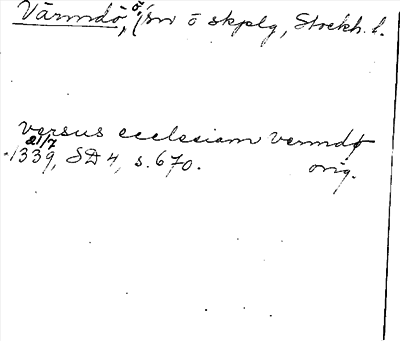 Värmdö, ö, (sn o skplg, Stockh. l.
versus ecclesiam vermdø
21/7
1339, SD 4, s. 670. orig.